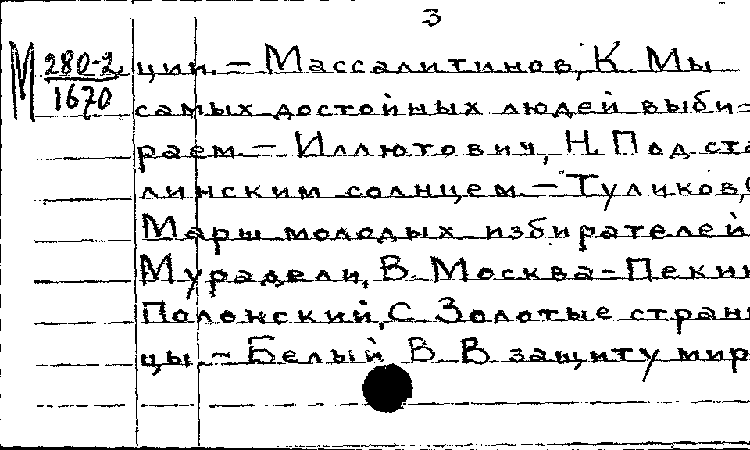 3
М 280-2 ции. – Массалитинов, К. Мы
1670 самых достойных людей выби-
раем. – Иллютович, Н. Под ста
линским солнцем. – Туликов,
Марш молодых избирателей
Мурадели, В. Москва – Пекин
Полонский, С. Золотые страни
цы. – Белый В. В защиту мир